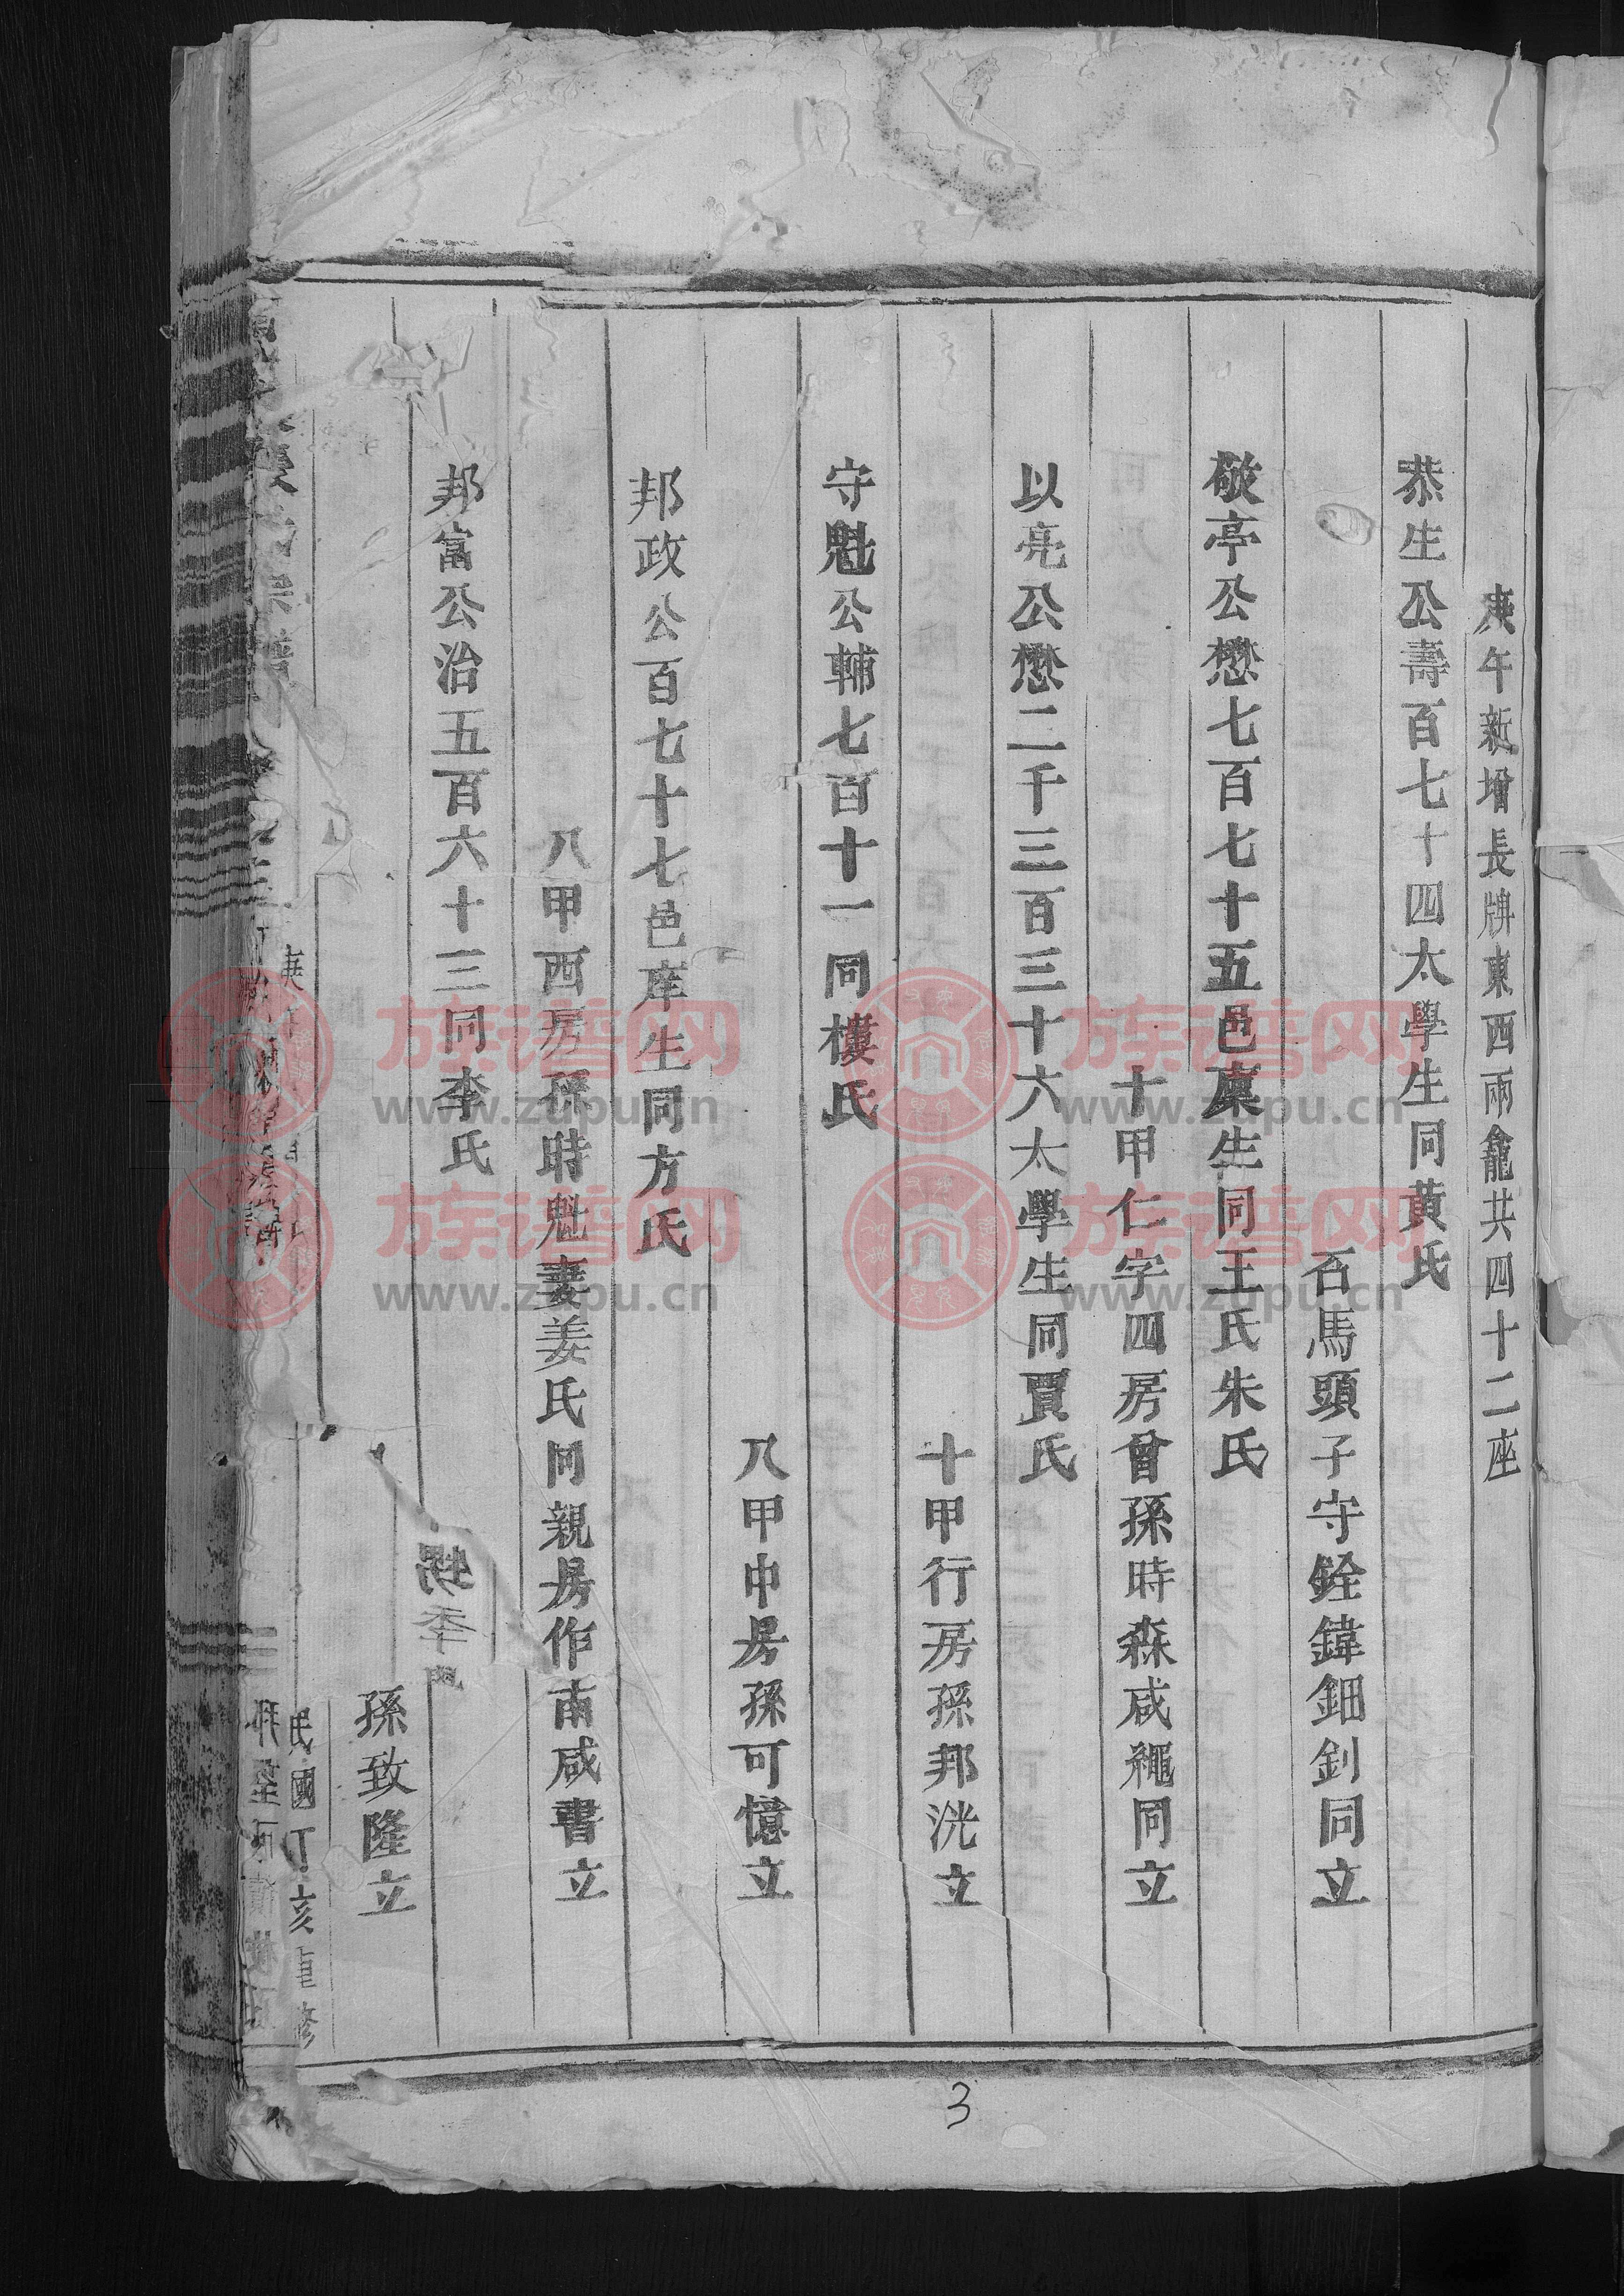 庚午新增長牌東西兩龕共四十二座
恭生公壽百七十四太學生同黃氏
石馬頭子守銓鍏鈿釗同立
敬亭公懋七百七十五邑廩生同王氏朱氏
十甲仁字四房曾孫時森咸繩同立
以亮公懋二千三百三十六太學生同賈氏
十甲行房孫邦洸立
守魁公輔七百十一同樓氏
八甲中房孫可憶立
邦政公百七十七邑庠生同方氏
八甲酉房孫時魁妻姜氏同親房作甫咸書立
邦富公治五百六十三同李氏
孫致隆立
民國丁亥重修
族谱网
www.zupu.cn
族谱网
www.zupu.cn
族谱网
www.zupu.cn
族谱网
www.zupu.cn
3